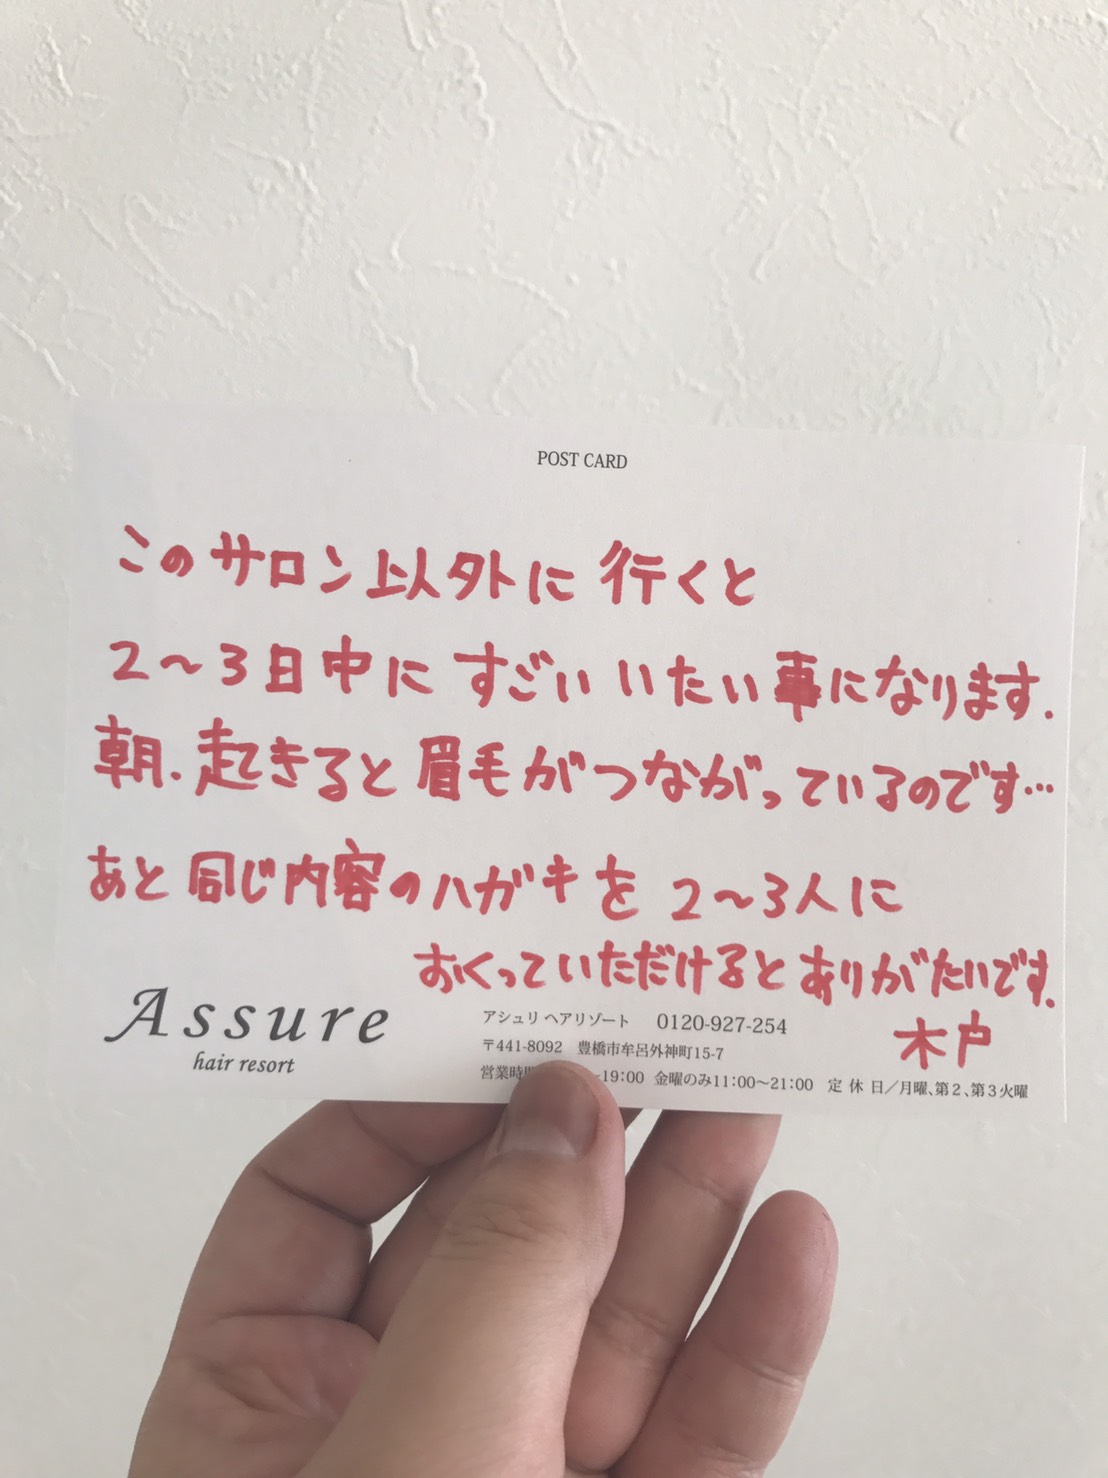 POST CARD
このサロン以外に行くと
2〜3日中にすごいいたい事になります.
朝.起きると眉毛がつながっているのです…
あと同じ内容のハガキを2〜3人に
おくっていただけるとありがたいです.
木戸
Assure
hair resort
アシュリ ヘアリゾート 0120-927-254
〒441-8092 豊橋市牟呂外神町15-7
営業時間 〜19:00 金曜のみ11:00〜21:00 定休日／月曜、第2、第3火曜